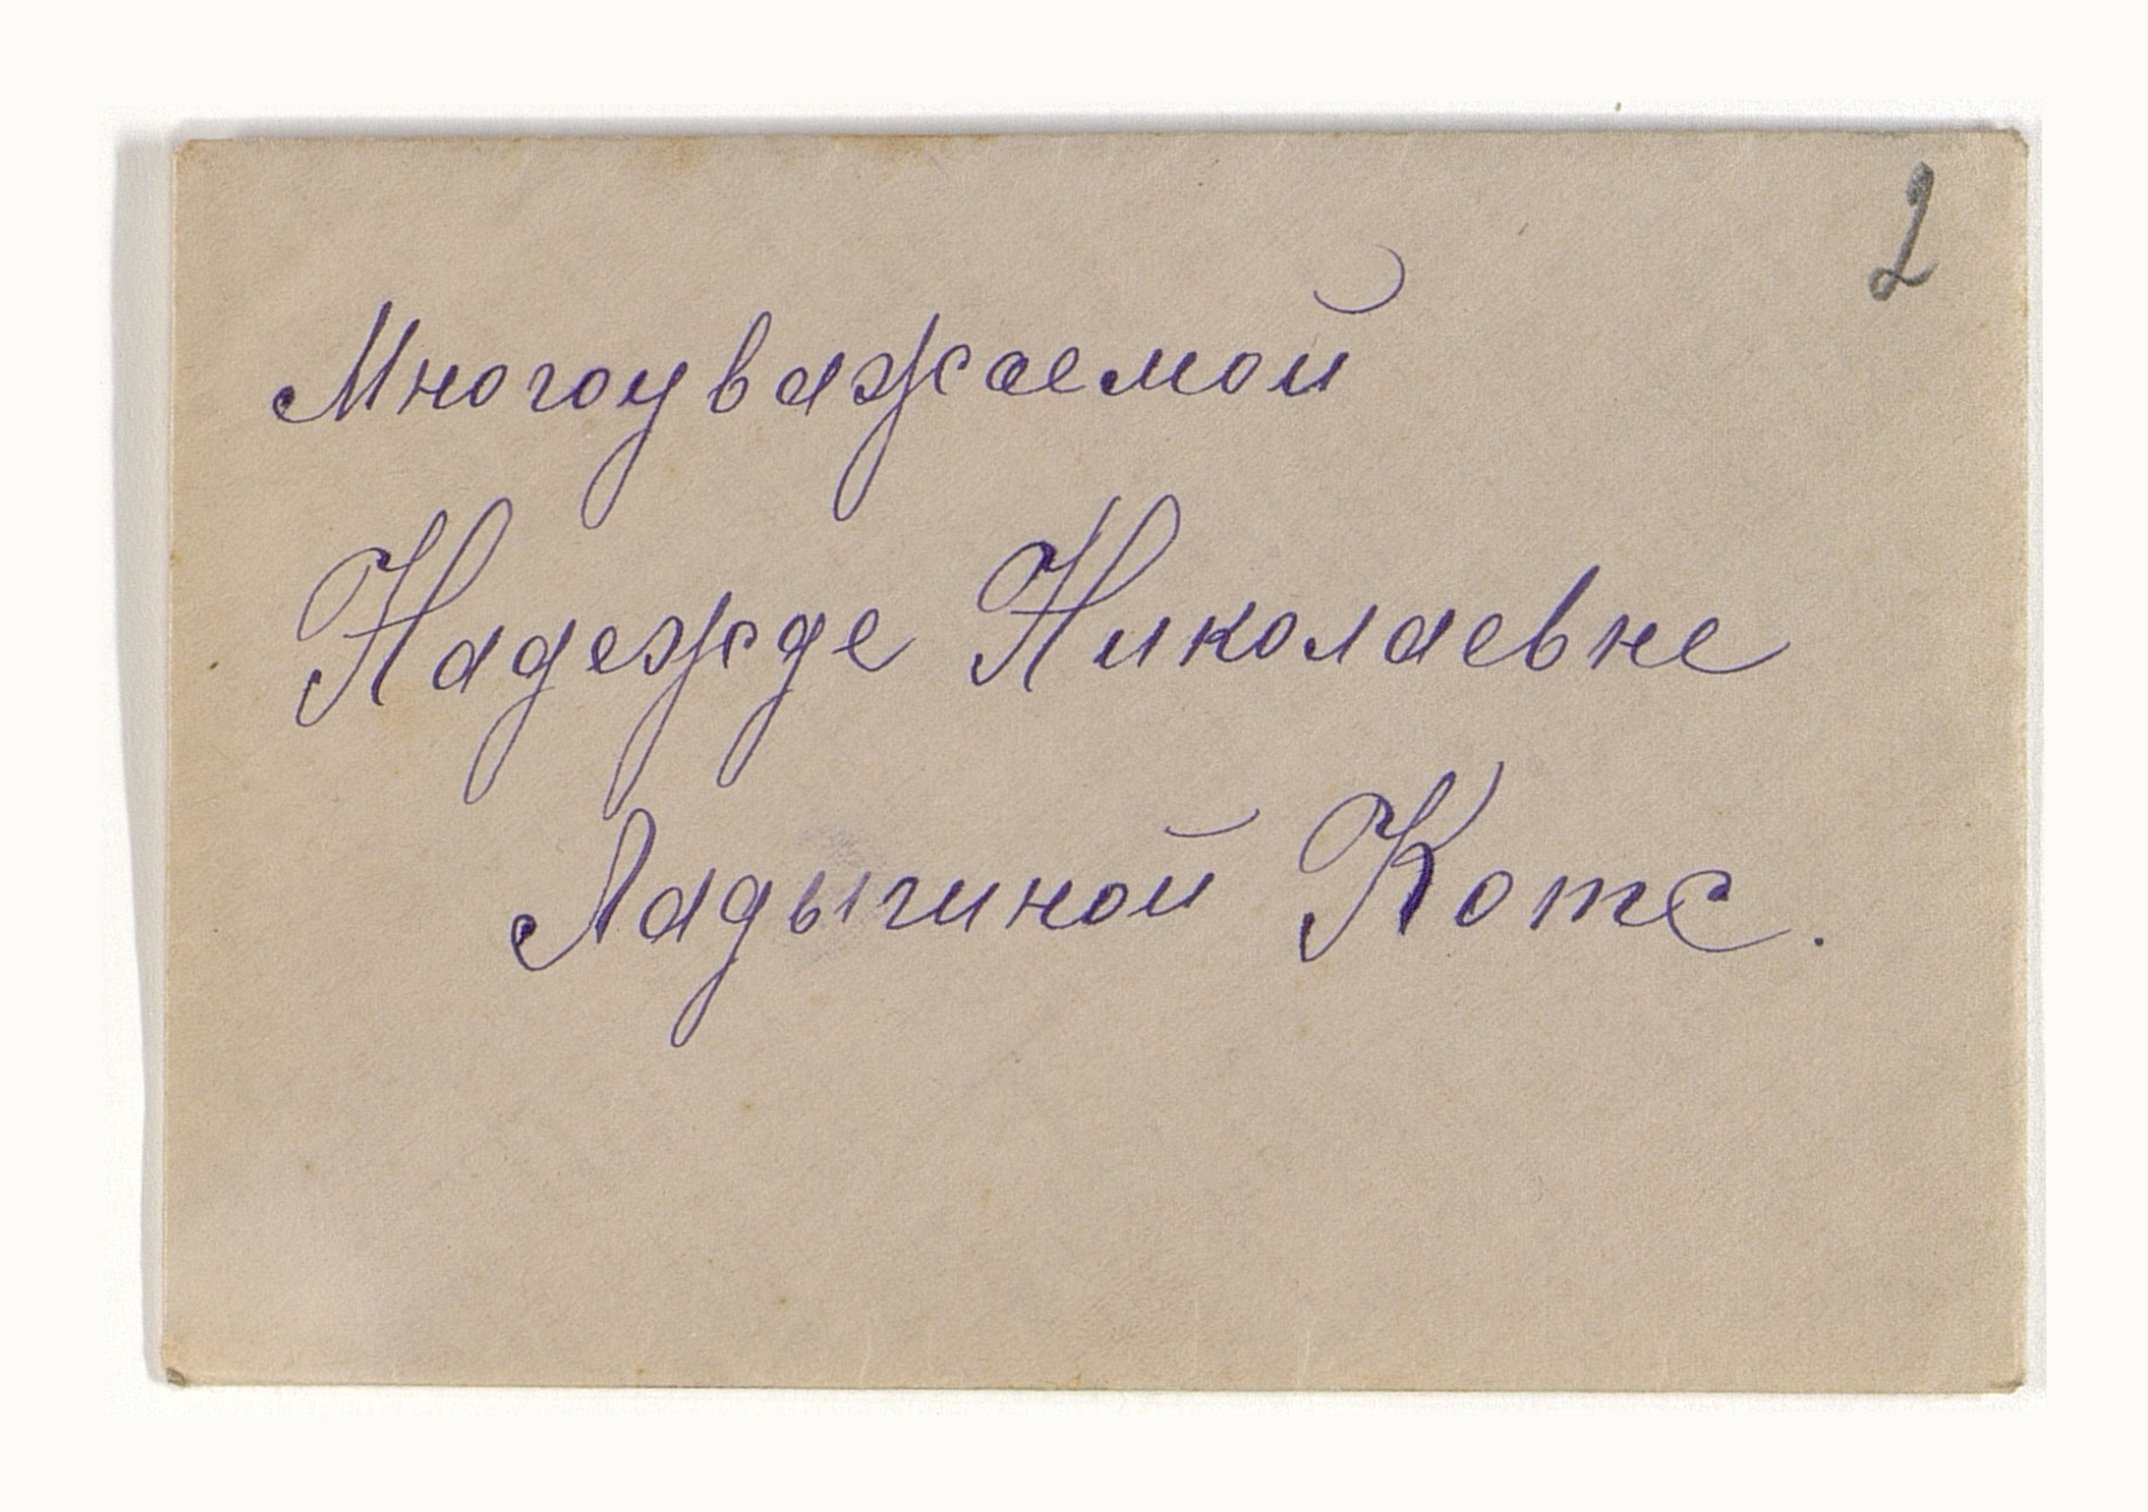 2
Многоуважаемой
Надежде Николаевне
Ладыгиной Котс.